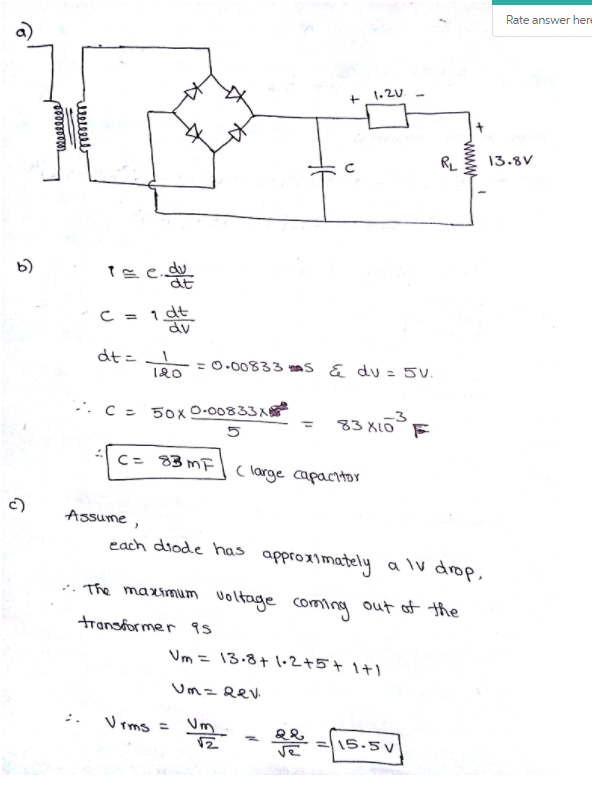 Rate answer here
a)
+ 1.2V -
+
C
RL 13.8V
-
b)
i ≅ c. dv/dt
C = i dt/dv
dt = 1/120 = 0.00833 s & dv = 5V.
∴ C = 50 x 0.00833 x / 5 = 83 x 10^-3 F
∴ C = 83 mF ( large capacitor
c)
Assume,
each diode has approximately a 1V drop,
∴ The maximum voltage coming out of the
transformer is
Vm = 13.8 + 1.2 + 5 + 1 + 1
Vm = 22V.
∴ Vrms = Vm/√2 = 22/√2 = 15.5 V